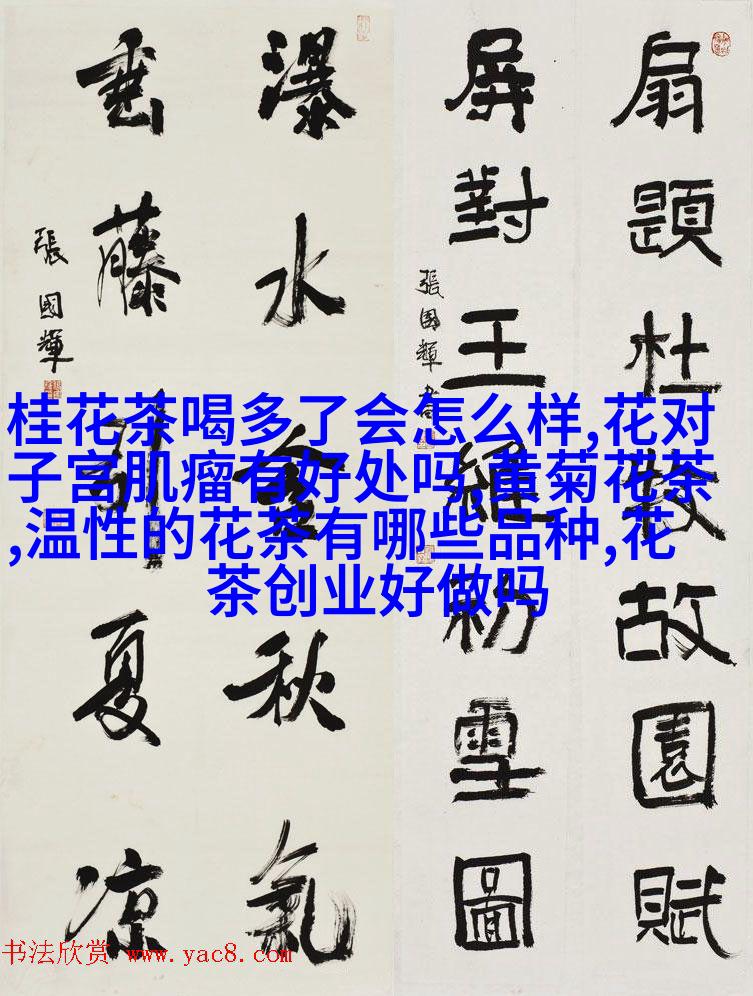 扇題杜牧故園賦
屏對王維初雪圖
張國輝書
瀑水含秋氣
垂藤引夏涼
張國輝
桂花茶喝多了会怎么样,花对
子宫肌瘤有好处吗,黄菊花茶
,温性的花茶有哪些品种,花
茶创业好做吗
书法欣赏 www.yac8.com